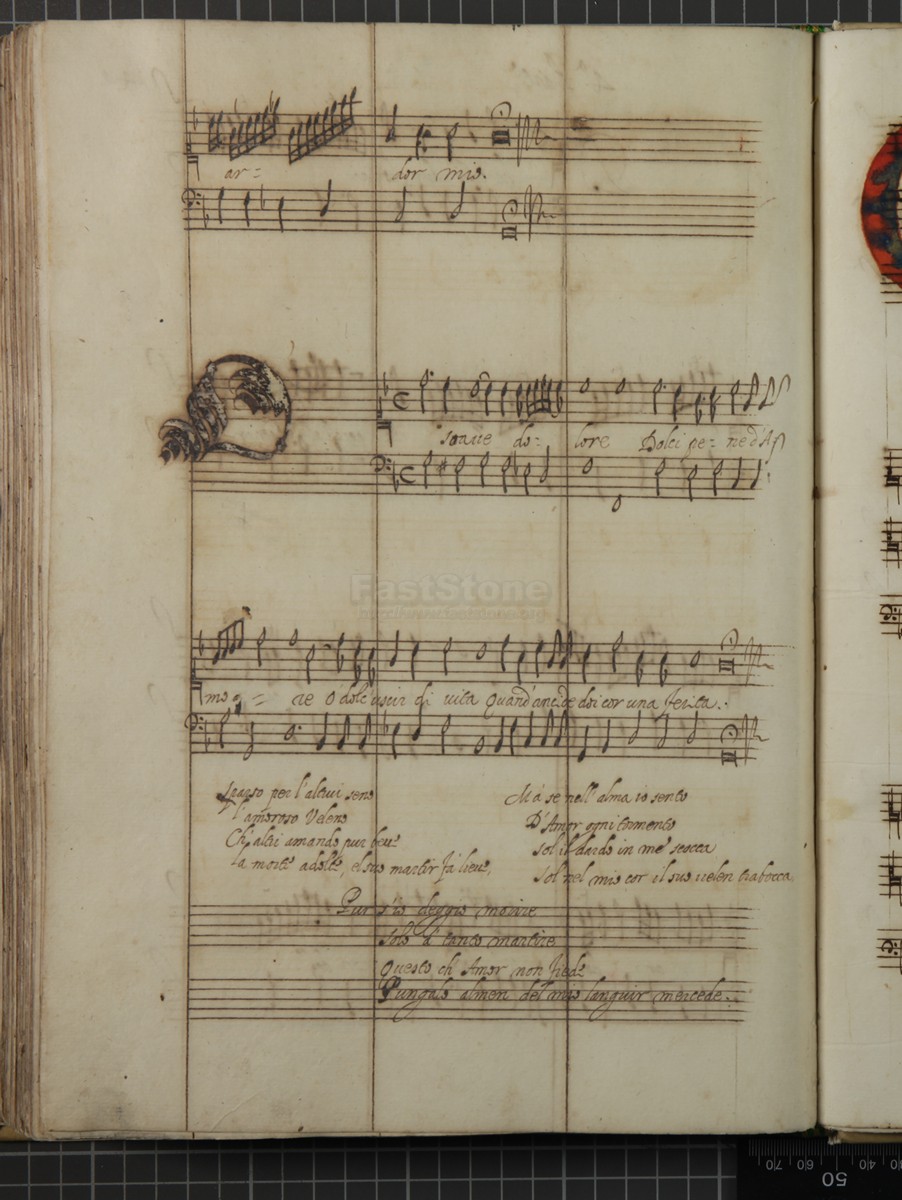 ar= dor mio.
O
soaue do= lore Dolci pe= ne d'A
mo = re O dolc' uscir di uita Quand' ancide doi cor una ferita.
FastStone
Sparso per l'altrui seno
l'amoroso Veleno
Ch' altri amando pur beue
la morte adolce, el suo martir fà lieue,
Mà se nell' alma io sento
D'Amor ogni tormento
Sol il dardo in me scocca
Sol nel mio cor il suo uelen trabocca
Pur s'io deggio morire
Solo à tanto martire
Questo ch' Amor non fiede
Pungalo almen del mio languir mercede.
70 60
50